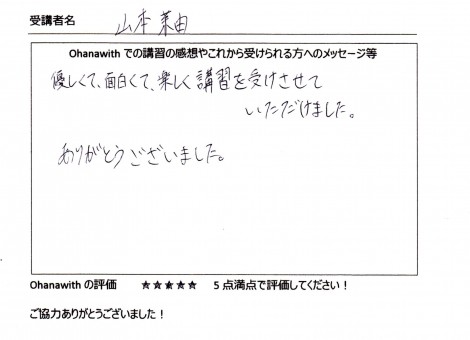 受講者名 山本 茉由
Ohanawith での講習の感想やこれから受けられる方へのメッセージ等
優しくて、面白くて、楽しく講習を受けさせて
いただけました。
ありがとうございました。
Ohanawith の評価 ★★★★★ 5 点満点で評価してください！
ご協力ありがとうございました！